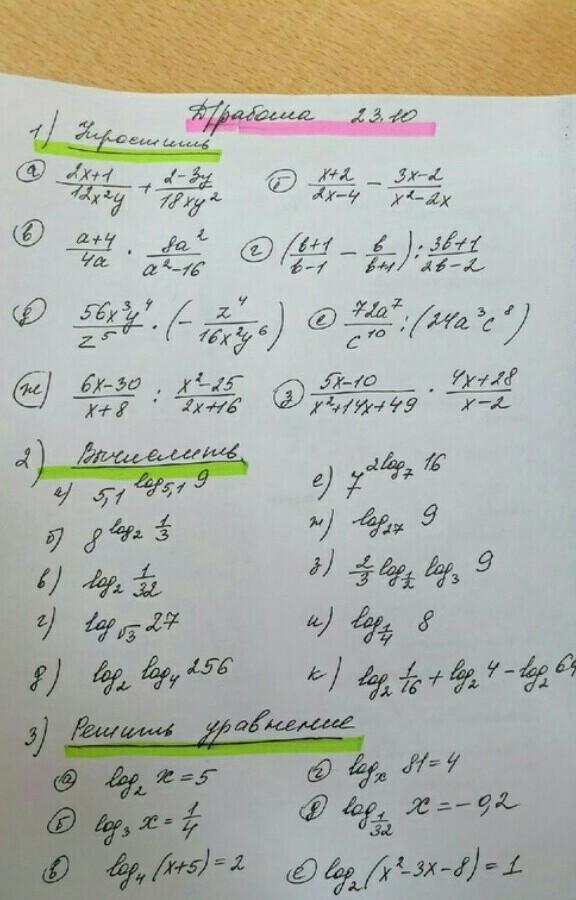 Д/работа 23.10
1) Упростить
а) (2x+1)/(12x²y) + (2-3y)/(18xy²) б) (x+2)/(2x-4) - (3x-2)/(x²-2x)
в) (a+4)/(4a) · (8a²)/(a²-16) г) ((b+1)/(b-1) - b/(b+1)) : (3b+1)/(2b-2)
д) (56x³y⁴)/(z⁵) · (- z⁴/(16x²y⁶)) е) (72a⁷)/(c¹⁰) : (24a³c⁸)
ж) (6x-30)/(x+8) : (x²-25)/(2x+16) з) (5x-10)/(x²+14x+49) · (4x+28)/(x-2)
2) Вычислить
а) 5,1^(log₅,₁ 9) е) 7^(2log₇ 16)
б) 8^(log₂ 1/3) ж) log₂₇ 9
в) log₂ 1/32 з) 2/3 log_(1/2) log₃ 9
г) log_√3 27 и) log_(1/4) 8
д) log₂ log₄ 256 к) log₂ 1/16 + log₂ 4 - log₂ 64
3) Решить уравнение
а) log₂ x = 5 г) logₓ 81 = 4
б) log₃ x = 1/4 д) log_(1/32) x = -0,2
в) log₄ (x+5) = 2 е) log₂ (x²-3x-8) = 1